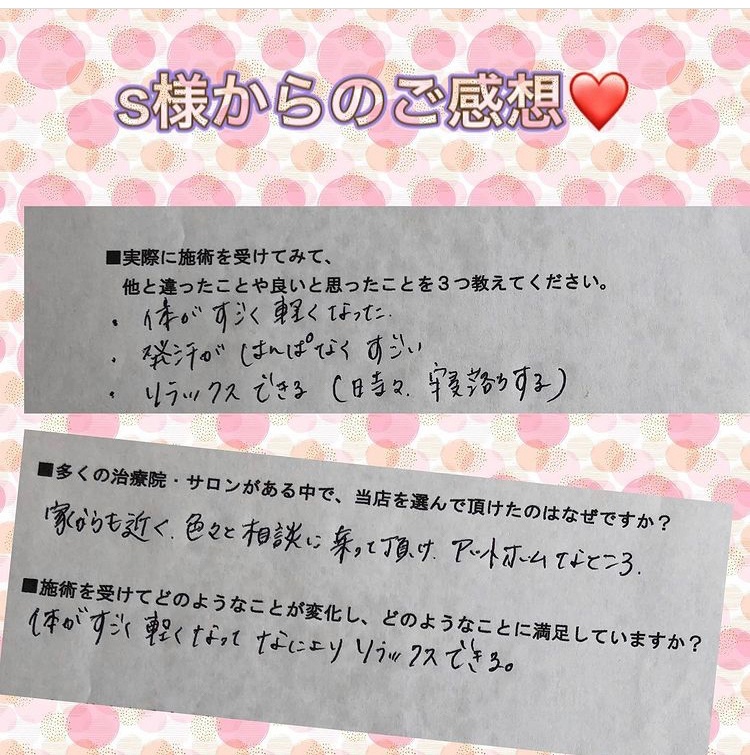 s様からのご感想❤️
■実際に施術を受けてみて、
他と違ったことや良いと思ったことを3つ教えてください。
・体がすごく軽くなった。
・発汗がはんぱなくすごい
・リラックスできる(時々、寝落ちする)
■多くの治療院・サロンがある中で、当店を選んで頂けたのはなぜですか？
家からも近く、色々と相談に乗って頂け、アットホームなところ。
■施術を受けてどのようなことが変化し、どのようなことに満足していますか？
体がすごく軽くなって なにより リラックスできる。